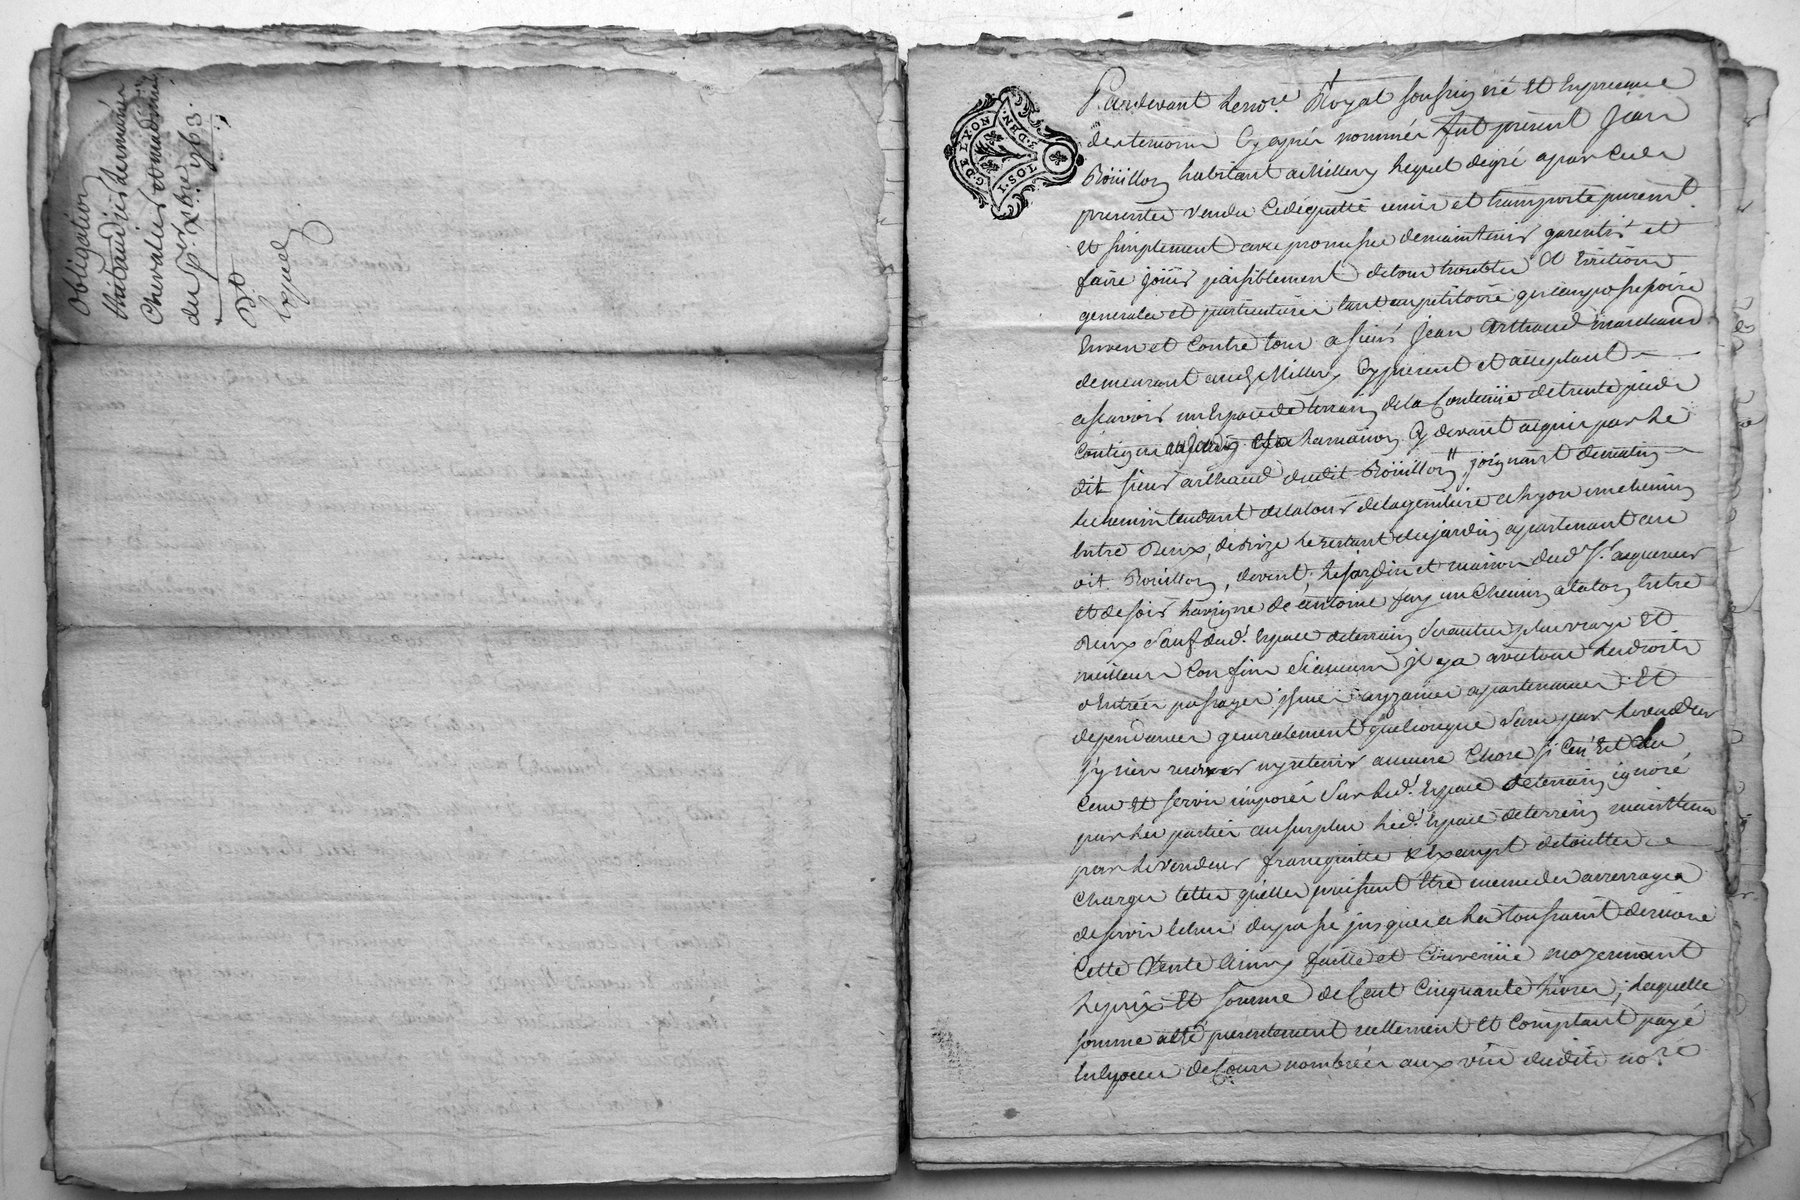 Obligation
Chevalier et
du pr. xbre 1763.
G. DE LYON
I. SOL
3. DEN.
Pardevant le nore Royal soussigné et En presence
des temoins Cy apres nommés fut present Jean
Roüillon habitant a Millery lequel de gré a par Ces
presentes vendu Cedé quitté remis et transporté purem.t
et simplement avec promesse de maintenir garentir et
faire joüir paisiblement de tous troubles Et Evictions
generales et particulieres tant au petitoire qu'au possessoire
Envers et Contre tous a sieur Jean Arthaud marchand
demeurant aud. Millery Cy present et acceptant
a sçavoir un Espace de terrain de la Contenüe de trente pieds
Contigus au jardin et a la maison Cy devant acquis par le
dit sieur arthaud dudit Roüillon, joignant de matin
le chemin tendant de la tour de la a Lyon un chemin
Entre Deux, de bize le restant du jardin apartenant au
dit Roüillon, de vent, le jardin et maison dud. Sr. acquereur
et de soir la vigne de antoine fay un Chemin a talon Entre
Deux sauf dud. Espace de terrain ses autres plus vrays Et
meilleurs Confins si aucuns il y a avec tous les droits
d'Entrées passages issues ayzances apartenances Et
dependances generalement quelconques sans par le vendeur
s'y rien reserver ny retenir aucune Chose si Ce n'Est
Cens Et servis imposés sur led. Espace de terrain ignoré
par les parties au surplus led. Espace de terrein maintenu
par le vendeur franc quitte Et Exempt de touttes
Charges telles qu'elles puissent Etre meme des arrerages
de servis Echus du passé jusques a la toussaint derniere
Cette Vente Ainsy faitte et Convenüe moyennant
le prix Et somme de Cent Cinquante Livres; laquelle
somme a Eté presentement réellement Et Comptant payé
En Especes de Cours nombrées aux vües dudit nore